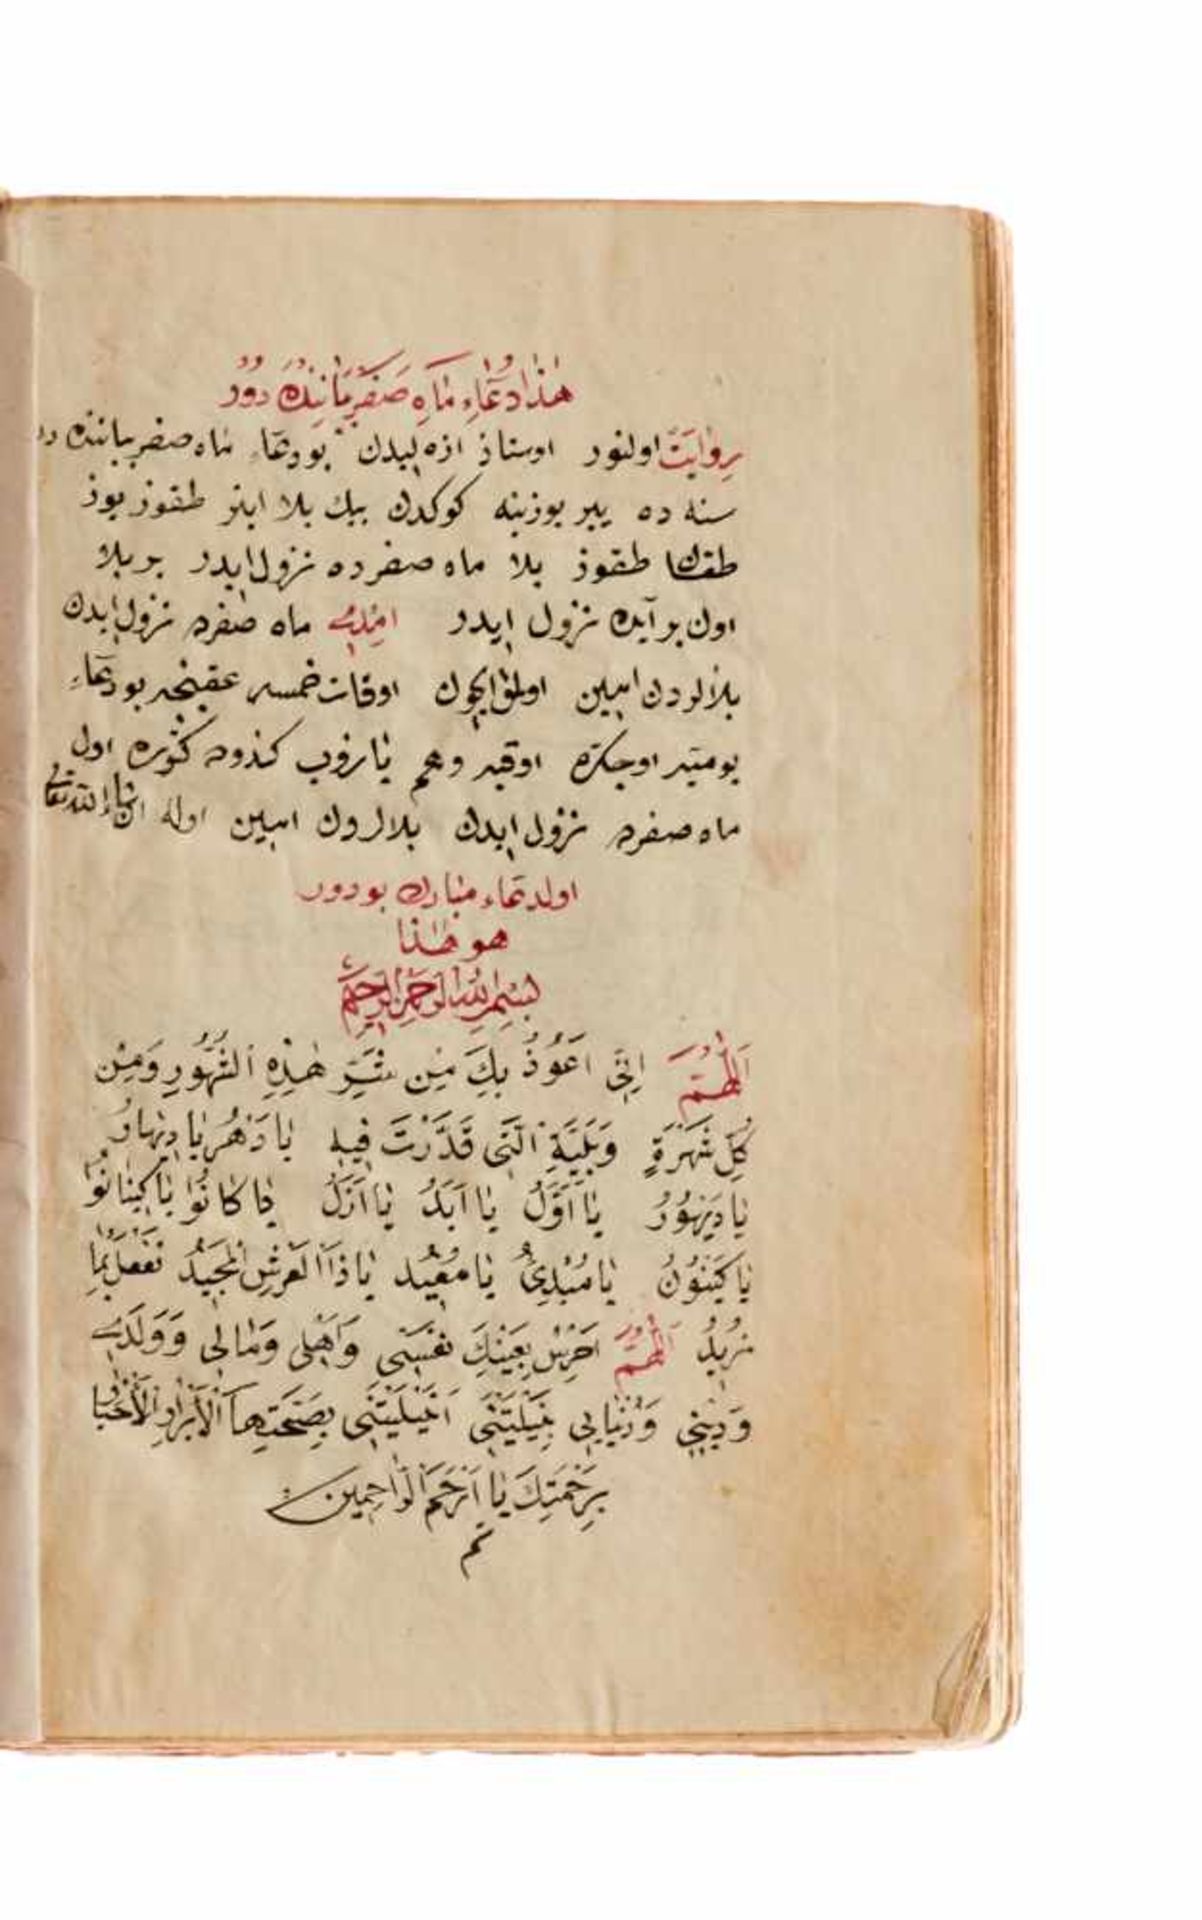 هٰذَا دُعَاءِ مَاهِ صَفَر بَيَانِنْدَه دُوُرْ
رِوَايَتْ اولنور اوستاذ ازه ليدن بودعاء ماه صفر بياننده در
سنه ده يير يوزينه كوكدن بيك بلا اينر طقوز يوز
طقسان طقوز بلا ماه صفرده نزول ايدر بر بلا
اون بر آيده نزول ايدر امدى ماه صفرده نزول ايدن
بلالردن امين اولمق ايچون اوقات خمسه عقبنجه بودعاء
يوميه اوچكره اوقيه وهم يازوب كندوده كتوره اول
ماه صفرده نزول ايدن بلالردن امين اوله ان شاء الله تعالى
اول دعاء مبارك بودور
هو هٰذا
بِسْمِ اللهِ الرَّحْمٰنِ الرَّحِيمِ
اَللّٰهُمَّ اِنِّي اَعُوذُ بِكَ مِن شَرِّ هٰذِهِ الشُّهُورِ وَمِنْ
كُلِّ شَهْرَةٍ وَبَلِيَّةِ الَّتِي قَدَّرْتَ فِيهِ يَا دَهْرُ يَا دِيهَارُ
يَا دَيْهُورُ يَا اَوَّلُ يَا اَبَدُ يَا اَزَلُ يَا كَانُوا يَا كِينَانُوا
يَا كَيْنُونُ يَا مُبْدِئُ يَا مُعِيد يَا ذَا الْعَرْشِ الْمَجِيدُ تَفْعَلُ بِمَا
تُرِيدُ اَللّٰهُمَّ اَحْرِسْ بِعَيْنِكَ نَفْسِي وَاَهْلِي وَمَالِي وَوَلَدِي
وَدِينِي وَدُنْيَايِي بِصُحْبَتِهَا الْاَبْرَارِ الْاَخْيَارِ
بِرَحْمَتِكَ يَا اَرْحَمَ الرَّاحِمِينَ
تم